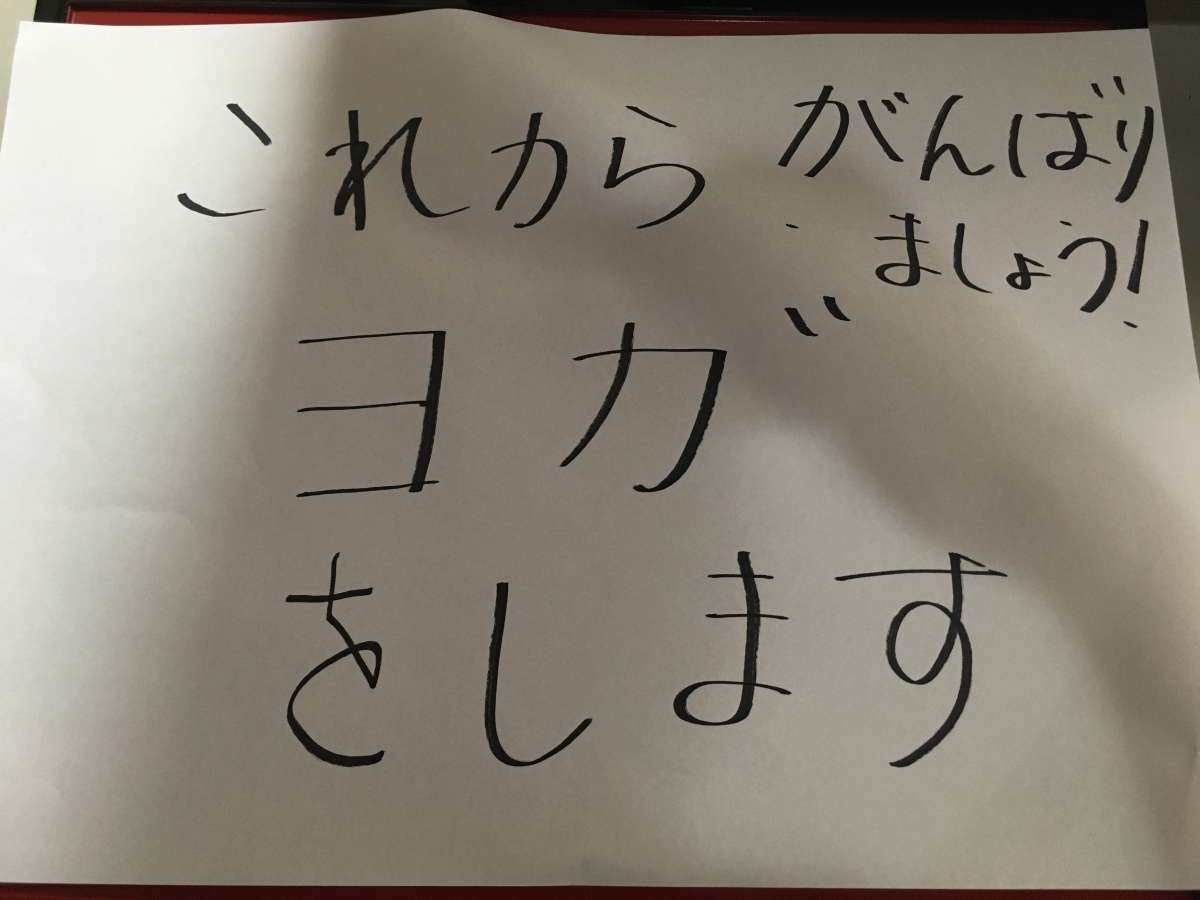 これから
ヨガ
をします
がんばり
ましょう!